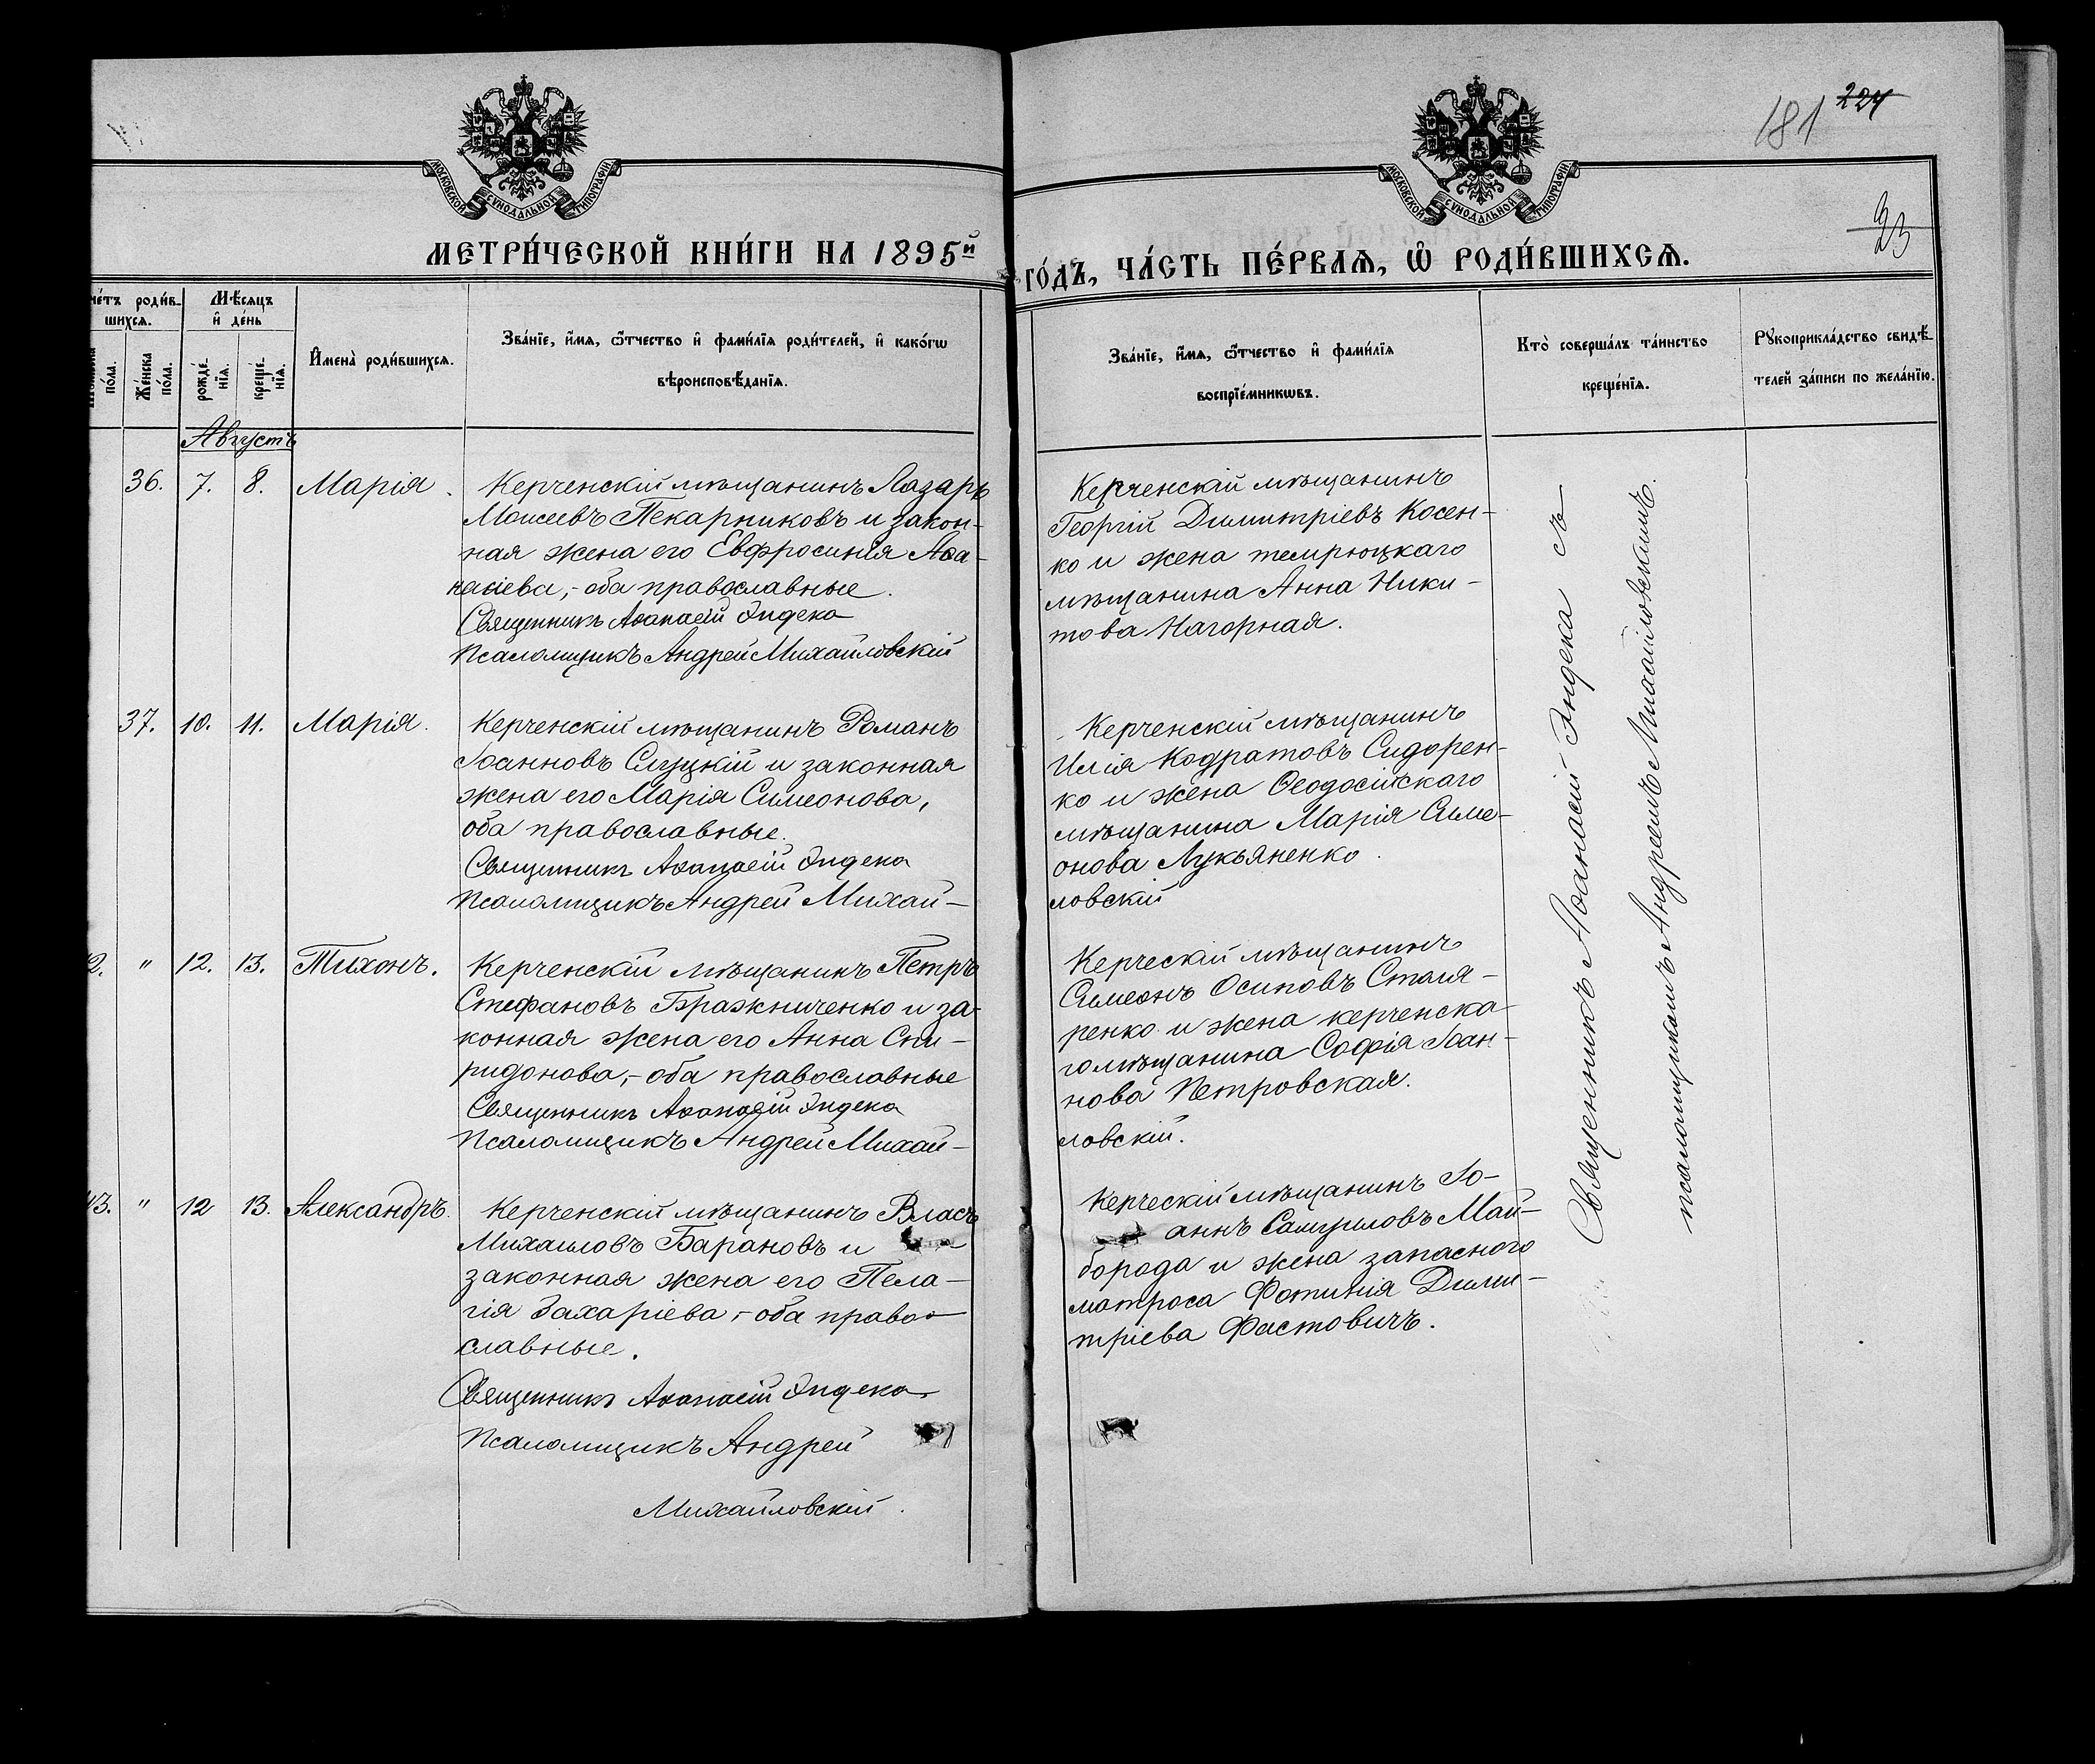 181 224
23
МОСКОВСКОЙ СѴНОДАЛЬНОЙ ТИПОГРАФІИ
МОСКОВСКОЙ СѴНОДАЛЬНОЙ ТИПОГРАФІИ
МЕТРИ́ЧЕСКОЙ КНИ́ГИ НА 1895й
ГО́ДЪ, ЧА́СТЬ ПЕ́РВАѦ, Ѿ РОДИ́ВШИХСѦ.
че́тъ роди́в-
шихсѧ.
по́ла.
Же́нска
по́ла.
Мѣ́сѧцъ
и҆ де́нь
рожде́-
нїѧ.
креще́-
нїѧ.
И҆мена̀ роди́вшихсѧ.
Зва́нїе, и҆́мѧ, ѻ҆́тчество и҆ фами́лїѧ роди́телей, и҆ како́гѡ
вѣроисповѣ́данїѧ.
Зва́нїе, и҆́мѧ, ѻ҆́тчество и҆ фами́лїѧ
воспрїе́мникѡвъ.
Кто̀ соверша́лъ та́инство
креще́нїѧ.
Рꙋкоприкла́дство свидѣ́-
телей за́писи по жела́нїю.
Августъ
36. 7. 8. Марія.
Керченскій мѣщанинъ Лазарь
Моисеевъ Пекарниковъ и закон-
ная жена его Евфросинія Аѳа-
насіева,- оба православные.
Священникъ Аѳанасій Эндека
Псаломщикъ Андрей Михайловскій
Керченскій мѣщанинъ
Георгій Димитріевъ Косен-
ко и жена темрюцкаго
мѣщанина Анна Ники-
това Нагорная.
37. 10. 11. Марія.
Керченскій мѣщанинъ Романъ
Іоанновъ Слуцкій и законная
жена его Марія Симеонова,
оба православные.
Священникъ Аѳанасій Эндека
Псаломщикъ Андрей Михай-
Керченскій мѣщанинъ
Илія Кодратовъ Сидорен-
ко и жена Ѳеодосійскаго
мѣщанина Марія Симе-
онова Лукьяненко.
ловскій
2. " 12. 13. Тихонъ.
Керченскій мѣщанинъ Петръ
Стефановъ Бражниченко и за-
конная жена его Анна Спи-
ридонова,- оба православные
Священникъ Аѳанасій Эндека
Псаломщикъ Андрей Михай-
Керческій мѣщанинъ
Симеонъ Осиповъ Столя-
ренко и жена керченска-
го мѣщанина Софія Іоан-
нова Петровская.
ловскій.
43. " 12 13. Александръ.
Керченскій мѣщанинъ Власъ
Михаиловъ Барановъ и
законная жена его Пела-
гія Захаріева,- оба право-
славные.
Священникъ Аѳанасій Эндека
Псаломщикъ Андрей
Михайловскій.
Керческій мѣщанинъ Іо-
аннъ Самуиловъ Май-
борода и жена запасного
матроса Фотинія Дими-
тріева Фастовичъ.
Священникъ Аѳанасій Эндека съ
псаломщикомъ Андреемъ Михайловскимъ.